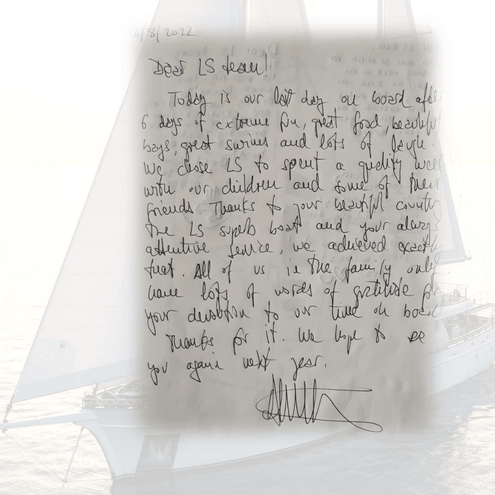 /8/2022
Dear LS team!
Today is our last day on board after
6 days of extreme fun, great food, beautiful
bays, great swims and lots of laugh.
We chose LS to spent a quality week
with our children and some of their
friends Thanks to your beautiful country
the LS superb boat and your always
attentive service, we achieved exactly
that. All of us in the family only
have lots of words of gratitude for
your devotion to our time on board
Thanks for it. We hope to see
you again next year.